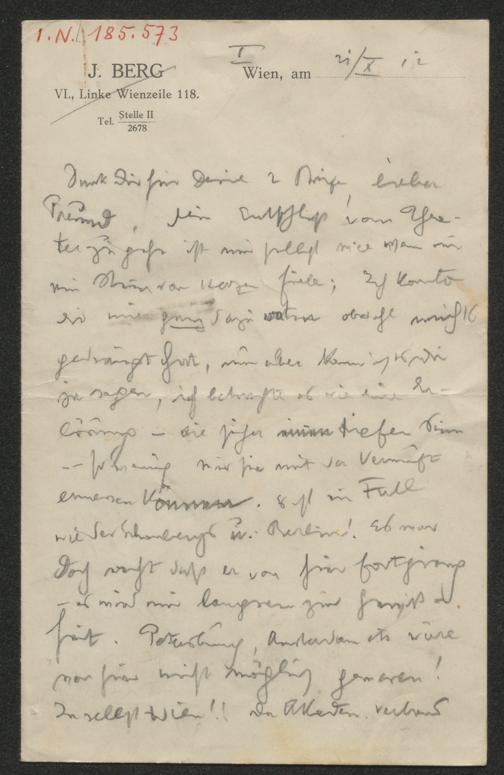 I.N. 185.573
I
J. BERG
Wien, am 21/X 12
VI., Linke Wienzeile 118.
Tel. Stelle II
2678
Dank Dir für Deine 2 Briefe lieber
Freund, Dein Entschluß vom Thea-
ter zu gehn ist mir selbst wie wenn mir
ein Stein von Herzen fiele; Ich konnte
Dir nie ganz dazu raten obwohl mich's
gedrängt hat, nun aber kann ich es Dir
zu sagen, ich betrachte es wie eine Er-
lösung – die sicher einen tiefen Sinn
wenig wir sie mit der Vernunft
ermessen können. Es ist ein Fall
wie der Schönbergs u. Berlin! Es war
doch recht daß er von hier fortging
– es wird mir langsam zur Gewiß-
heit. Petersburg, Amsterdam etc wäre
von hier nicht möglich gewesen!
Ja selbst Wien!! Der Akadem. Verband